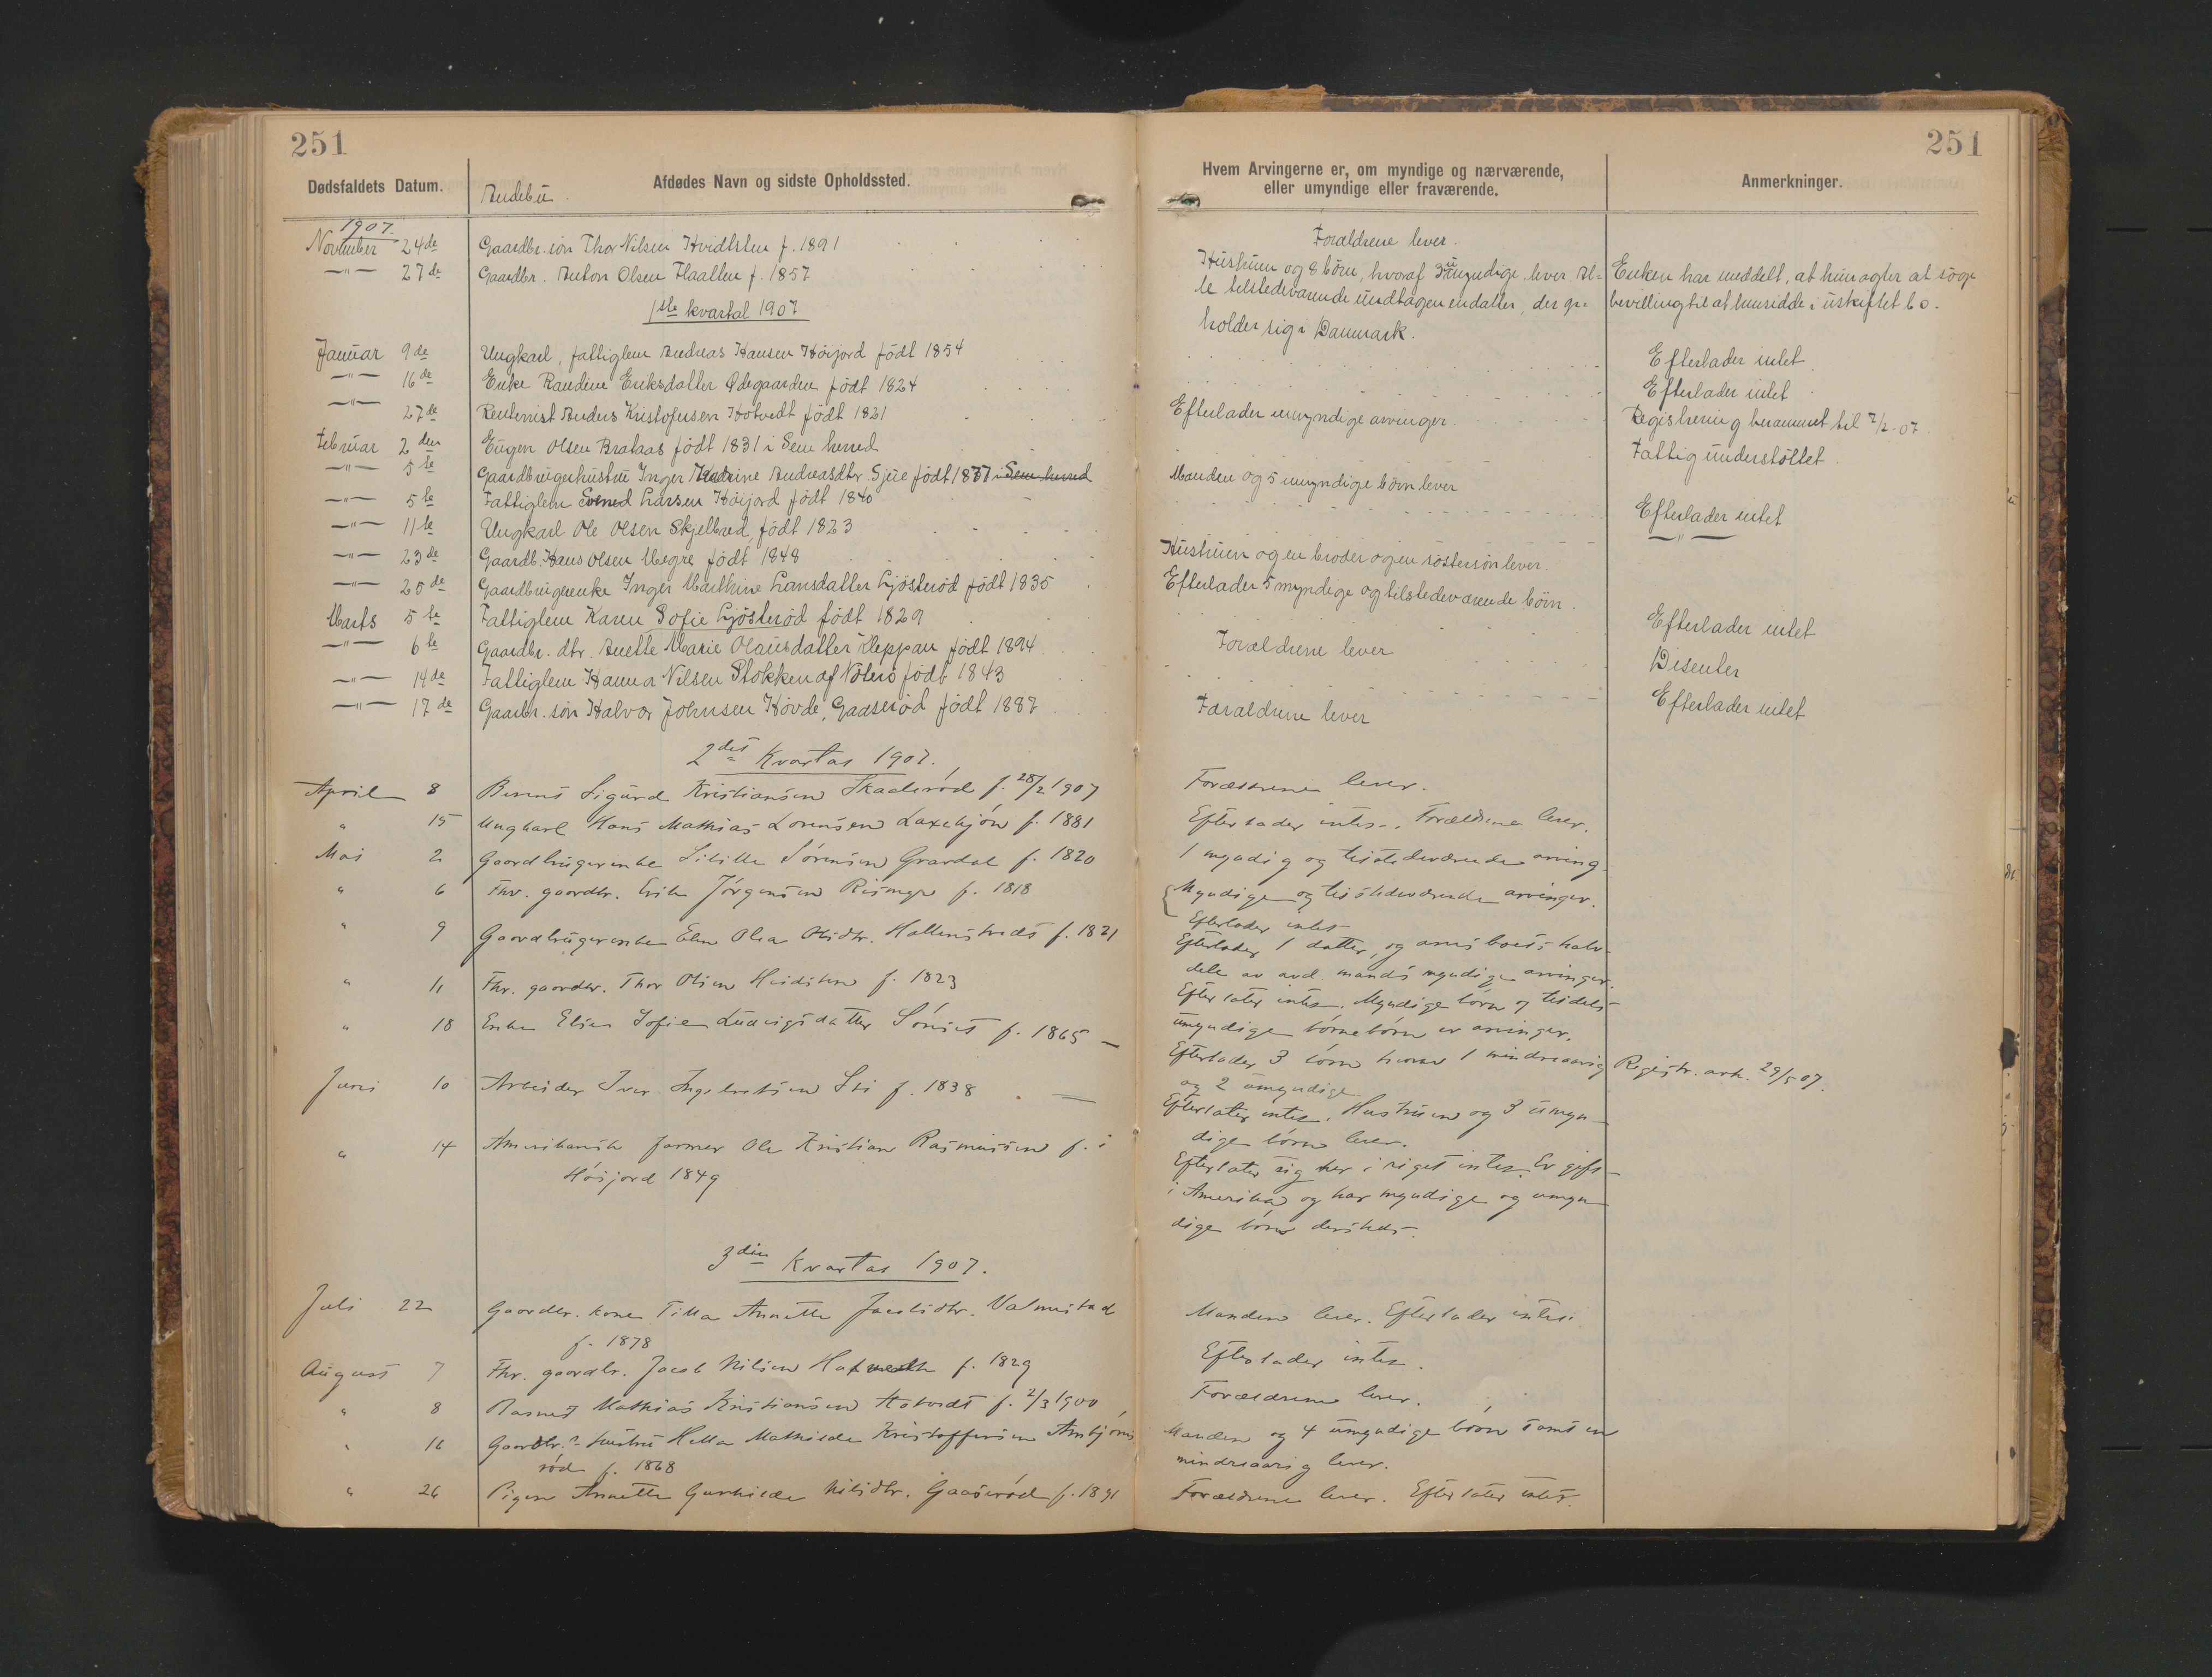 251
Dødsfaldets Datum.
Andebu.
Afdødes Navn og sidste Opholdssted.
1907.
November 24de Gaardbr. søn Thor Nilsen Hvidtsten f. 1891
—"— 27de Gaardbr. Anton Olsen Flaatten f. 1857
1ste kvartal 1907
Januar 9de Ungkarl, fattiglem Andreas Hansen Höijord födt 1854
—"— 16de Enke Randine Eriksdatter Ødegaarden födt 1824
—"— 27de Rentenist Anders Kristofersen Hotvedt födt 1821
Februar 2den Eugen Olsen Brataas födt 1831 i Sem herred
—"— 5te Gaardbrugerhustru Inger Andreasdtr. Sjue födt 1877 i Sem herred
—"— 5te Fattiglem Larsen Höijord födt 1840
—"— 11te Ungkarl Ole Olsen Skjelbred, födt 1823
—"— 23de Gaardb. Hans Olsen Møgre födt 1848
—"— 25de Gaardbrugerenke Inger Mathine Larnsdatter Gjösterød födt 1835
Marts 5te Fattiglem Karen Sofie Gjösterød födt 1829
—"— 6te Gaardbr. dtr. Anette Marie Olausdatter Kleppan födt 1894
—"— 14de Fattiglem Hanna Nilsen Stokken af Nöterö födt 1843
—"— 17de Gaarbr. søn Halvor Johnsen Hovde, Gaaserød födt 1887
2det Kvartal 1907.
April 8 Sigurd Kristiansen Skaalerød f. 28/2 1907
" 15 Ungkarl Hans Mathias Lorensen Laxehjön f. 1881
Mai 2 Gaardbrugerenke Sibille Sörensen Gravdal f. 1820
" 6 Fhv. gaardbr. Erik Jørgensen Rismyr f. 1818
" 9 Gaardbrugerenke Elen Olea Olsdtr. Hallenstvedt f. 1821
" 11 Fhv. gaardbr. Thor Olsen Hvidsten f. 1823
" 18 Enke Elise Sofie Ludvigsdatter Sörset f. 1865 —
Juni 10 Arbeider Iver Ingebretsen Sti f. 1838 —
" 14 Amerikansk farmer Ole Kristian Rasmussen f. i
Höijord 1849
3die Kvartal 1907.
Juli 22 Gaardbr. kone Tilla Annette Jacobsdtr. Valmestad
f. 1878
August 7 Fhv. gaardbr. Jacob Nilsen Hotvedt f. 1829
" 8 Barnet Mathias Kristiansen Hotvedt f. 2/3 1900
" 16 Gaardbr. hustru Hella Mathilde Kristoffersen Anbjörns
röd f. 1868
" 26 Pigen Annette Gunhilde Nilsdtr. Gaaserød f. 1891
251
Hvem Arvingerne er, om myndige og nærværende,
eller umyndige eller fraværende.
Anmerkninger.
Forældrene lever.
Hustruen og 8 börn, hvoraf 3 umyndige lever Al-
le tilstedeværende undtagen en datter, der op-
holder sig i Danmark.
Enken har meddelt, at hun agter at söge
bevilling til at hensidde i uskiftet bo.
Efterlader intet
Efterlader intet
Efterlader umyndige arvinger.
Registrering berammet til 7/2-07
Fattigunderstöttet
Manden og 5 umyndige börn lever
Efterlader intet
—"—
Hustruen og en broder og en söstersön lever.
Efterlader 5 myndige og tilstedeværende börn.
Efterlader intet
Forældrene lever
Disenter
Efterlader intet
Forældrene lever
Forældrene lever.
Efterlader intet. Forældrene lever.
1 myndig og tilstedeværende arving.
Myndige og tilstedeværende arvinger.
Efterlader intet
Efterlader 1 datter, og boets halv-
dele av avd. mands myndige arvinger.
Efterlater intet. Myndige börn og tildels
umyndige börnebörn er arvinger.
Efterlader 3 börn hvorav 1 mindreaarig
og 2 umyndige.
Registr. avh. 29/5 07.
Efterlater intet. Hustruen og 3 umyn-
dige börn lever.
Efterlater sig her i riget intet. Er gift
i Amerika og har myndige og umyn
dige börn dersteds.
Manden lever. Efterlader intet.
Efterlader intet.
Forældrene lever.
Manden og 4 umyndige börn samt en
mindreaarig lever.
Forældrene lever. Efterlater intet.